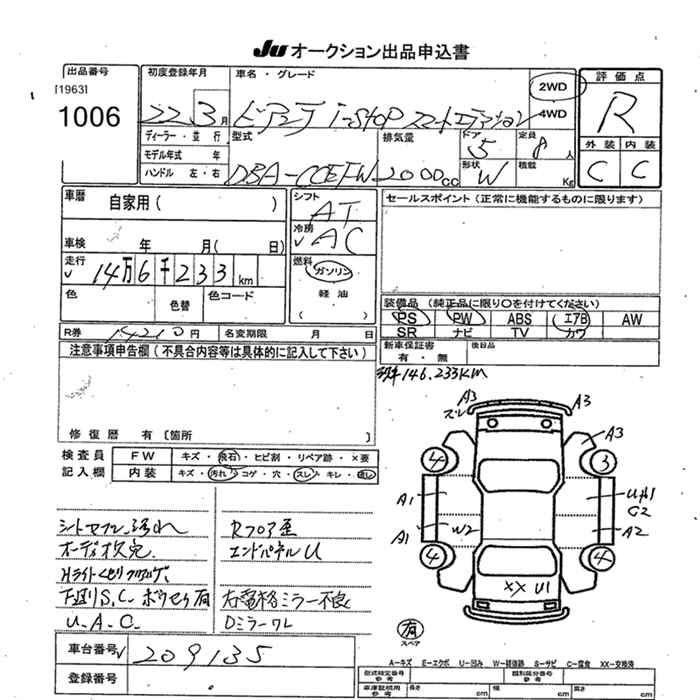 JU オークション出品申込書
出品番号
[1963]
1006
初度登録年月
22 3月
車名・グレード
ビアンテ i-STOP スマートエディション
2WD
4WD
評価点
R
外装 内装
C C
ディーラー・並行
モデル年式 年
ハンドル 左・右
型式
DBA-CCEFW
排気量
2000cc
ドア
5
形状
W
定員
8人
積載
Kg
車歴 自家用( )
車検 年 月(日)
走行 14万6千233km
色 色替 色コード
R券 14210円 名変期限 月 日
シフト
AT
冷房
AC
燃料
ガソリン
軽油
( )
セールスポイント(正常に機能するものに限ります)
装備品(純正品に限り○を付けてください)
PS PW ABS エアB AW
SR ナビ TV カワ
新車保証書
有・無
後日品
注意事項申告欄(不具合内容等は具体的に記入して下さい)
修復歴 有〔箇所 〕
146,233KM
検査員
記入欄
FW キズ・飛石・ヒビ割・リペア跡・×要
内装 キズ・汚れ・コゲ・穴・スレ・キレ・
シートセフン 汚れ
オーディオ欠完
下廻りS.C
U.A.C
Rフロア歪
エンドパネルU
右電格ミラー不良
Dミラーワレ
A3
スレ
A3
A3
4
3
A1
A1
W2
U
G2
A2
4
4
XX U1
有
スペア
車台番号
登録番号
209135
A-キズ E-エクボ U-凹み W-補修跡 S-サビ C-腐食 XX-交換済
型式指定番号
参考
類別区分番号
参考
車庫証明用
参考
長さ cm
幅 cm
高さ cm